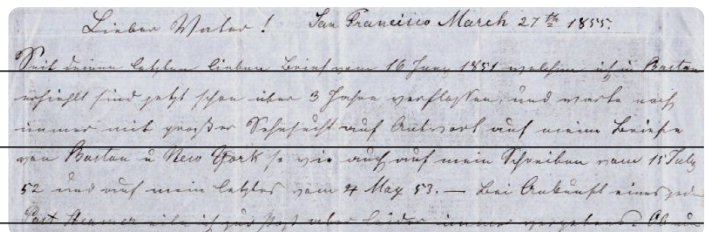 Lieber Vater! San Francisco March 27th 1855.
Seit deinen letzten lieben Brief vom 16 Juny 1851 welchen ich in Boston
erhiehlt sind jetzt schon über 3 Jahre verflossen, und warte noch
immer mit großer Sehnsucht auf Antwort auf meine Briefe
von Boston u New York so wie auch auf mein Schreiben vom 15 July
52 und auf mein letztes vom 4 May 53. — Bei Ankunft eines jeden
Post Steamer eile ich zur Post aber leider immer vergebens. Ob